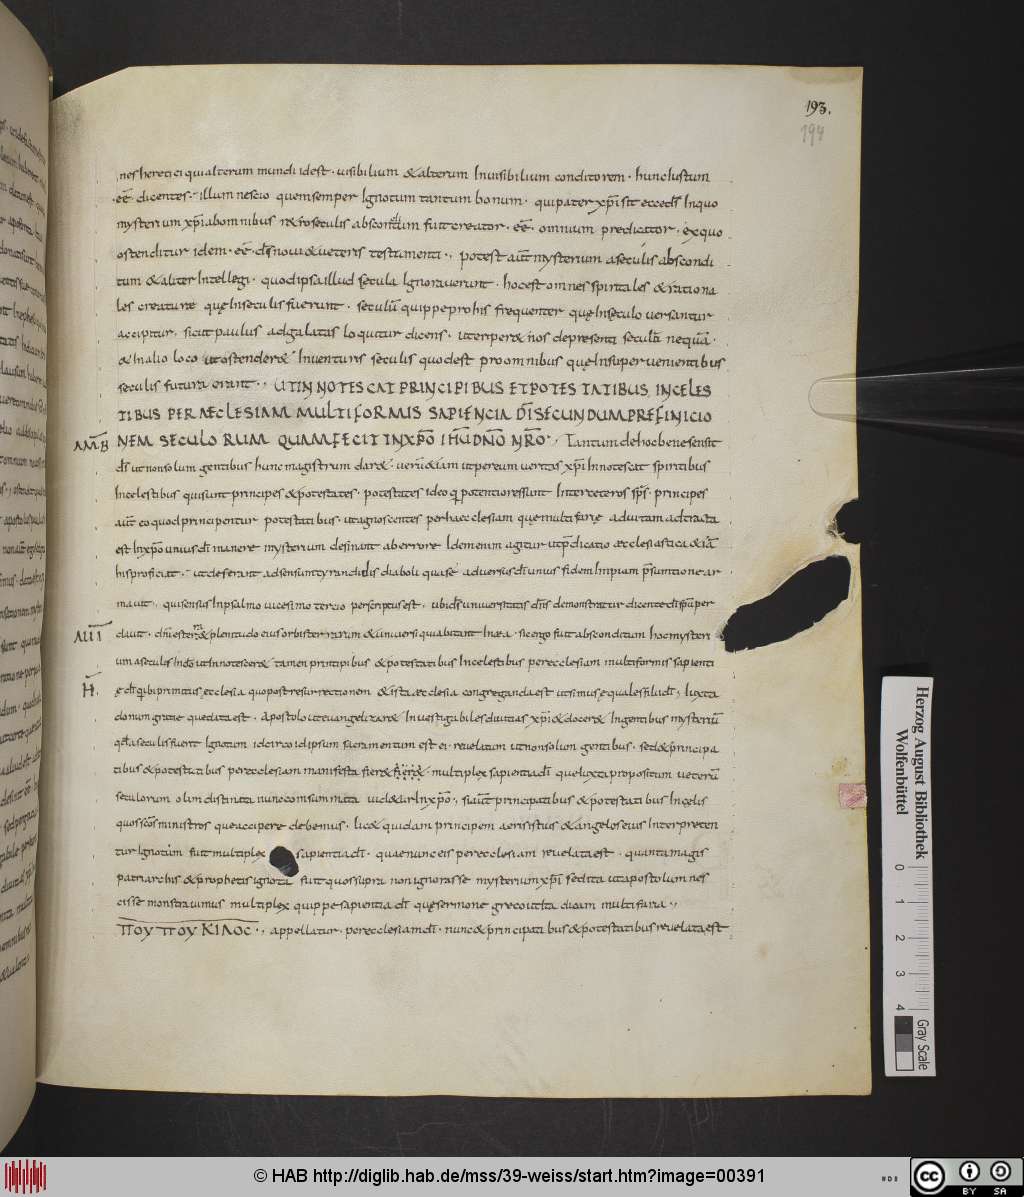 193.
194
nes heretici qui alterum mundi idest · uisibilium & alterum Inuisibilium conditorem · hunc Iustum
eē dicentes · illum nescio quem semper Ignotum tantum bonum · qui pater xp̄i sit ecce dēs In quo
mysterium xp̄i ab omnibus retro seculis absconditum fuit creator · eē · omnium predicator · ex quo
ostenditur idem · eē · d̄s noui & ueteris testamenti · potest aūt mysterium a seculis abscondi
tum & aliter Intellegi · quod ipsa illud secula Ignorauerunt · hoc est omnes spiritales & rationa
les creature quę In seculis fuerunt · seculū quippe pro his frequenter quę In seculo uersantur
accipitur, sicut paulus ad galatas loquitur dicens · ut eriper& nos de presenti seculo nequā ·
& In alio loco ut ostender& Inuenturis seculis quod est pro omnibus quę In superuenientibus
seculis futura erant · UT INNOTESCAT PRINCIPIBUS ET POTESTATIBUS IN CELES
TIBUS PER AECLESIAM MULTIFORMIS SAPIENCIA DĪ SECUNDUM PREFINICIO
NEM SECULORUM QUAM FECIT IN XPŌ IHŪ DNŌ NRŌ · Tantum de hoc bene sensit
AMB
d̄s ut non solum gentibus hunc magistrum dar& · uerū &iam ut per eum ueritas xp̄i Innotescat spiritibus
In celestibus qui sunt principes & potestates · potestates ideo q potentiores sunt Inter ceteros sp̄s · principes
aūt eo quod principentur potestatibus · ut agnoscentes per hanc ecclesiam que multifarię adunitam adtracta
est In xpo unius dī manere mysterium desinant ab errore Idem enim agitur ut p̄dicatio æcclesiastica &iā
his proficiat · ut deferant adsensum tyrannidis diaboli quasé aduersus dī unius fidem Impiam p̄suntione ar
mauit · qui sensus In psalmo uicesimo tercio perscriptus est · ubi d̄s uniuersitatis dn̄s demonstratur dicente dī sp̄u per
dauit · dnī est terra & plenitudo eius orbis terrarum & uniuersi qui habitant In ea · sic ergo fuit absconditum hoc mysteri
um a seculis In dō ut Innotescer& tamen principibus & potestatibus In celestibus per ecclesiam multiformis sapienti
H̄.
ę dī q ibi primitus ęcclesia quo post resurrectionem & ista æcclesia congreganda est ut simus ęquales filii dī, Iuxta
donum gratie que data est · apostolo ut euangelizar& Inuestigabiles diuitias xp̄i & docer& In gentibus mysteriū
qđ a seculis fuerit Ignotum idcirco id ipsum sacramentum est ei · reuelatum ut non solum gentibus · sed & principa
tibus & potestatibus per ecclesiam manifesta fier& fier& · multiplex sapientia dī que Iuxta propositum ueterū
seculorum olim distinata nunc consummata uid&ur In xpō · si aūt principatibus & potestatibus In celis
quos scōs ministros que accipere debemus · lic& quidam principem aeris istius & angelos eius Interpreten
tur Ignotum fuit multiplex sapientia dī · quae nunc eis per ecclesiam reuelata est · quanta magis
patriarchis & prophetis ignota fuit quos supra non ignorasse mysterium xp̄i sed ita ut apostolum nes
cisse monstrauimus multiplex quippe sapientia dī quę sermone greco ut Ita dicam multifaria ·
ΠΟΥ ΠΟΥ ΚΙΛΟC · appellatur · per ecclesiam dī · nunc & principatibus & potestatibus reuelata est
Herzog August Bibliothek
Wolfenbüttel
0 1 2 3 4
Gray Scale
© HAB http://diglib.hab.de/mss/39-weiss/start.htm?image=00391
cc BY SA